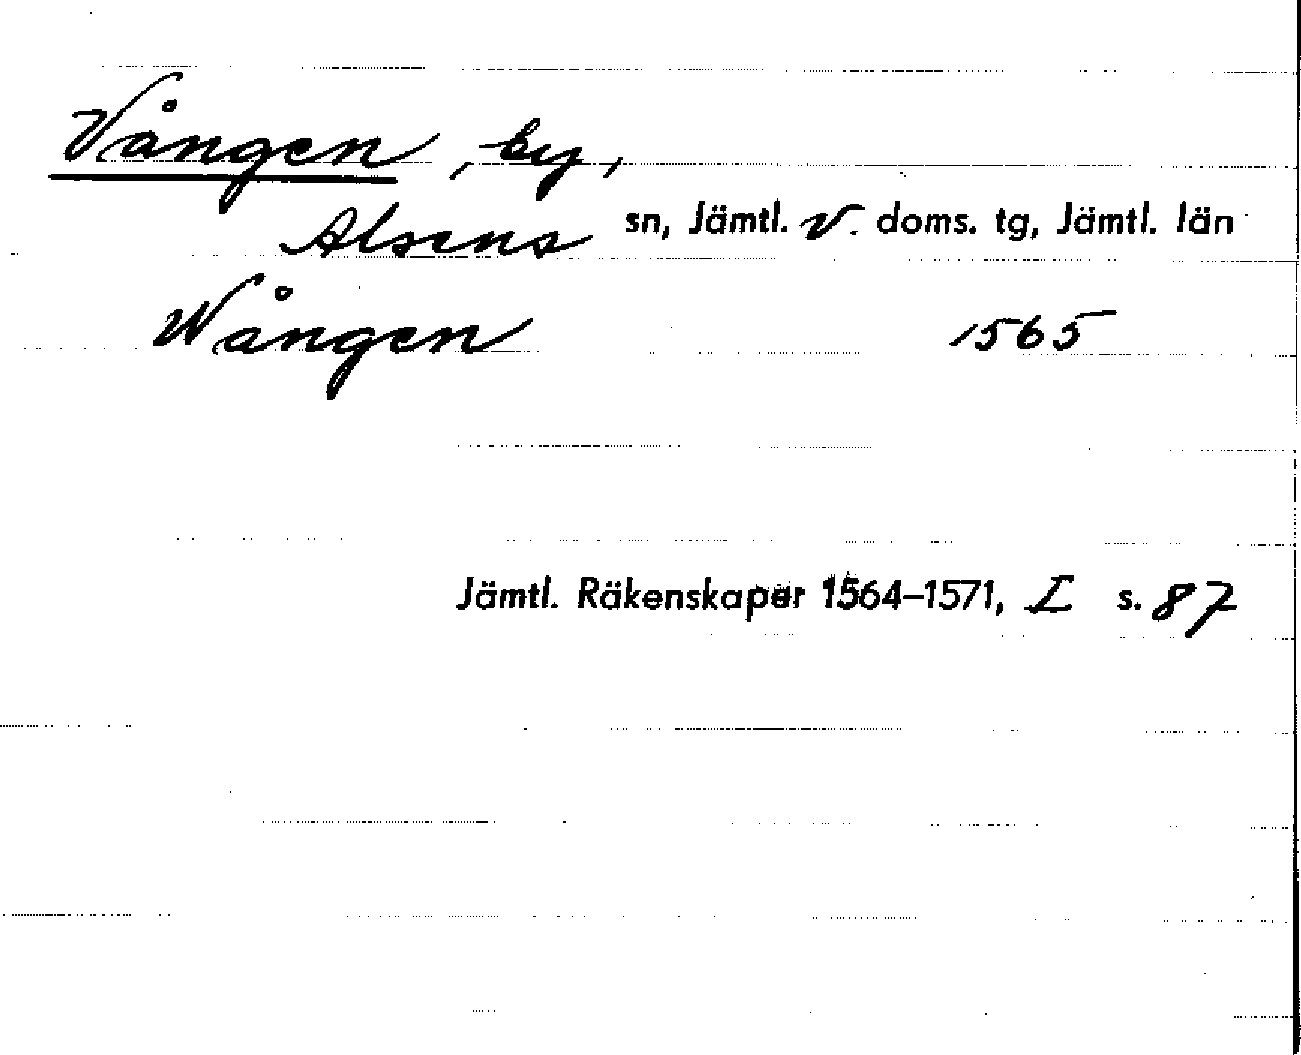 Vången, by,
Alsens sn, Jämtl. v. doms. tg, Jämtl. län
Wången 1565
Jämtl. Räkenskaper 1564–1571, I s. 87